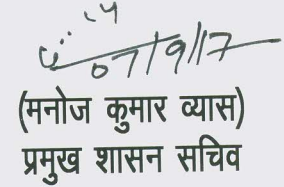 07/9/17
(मनोज कुमार व्यास)
प्रमुख शासन सचिव